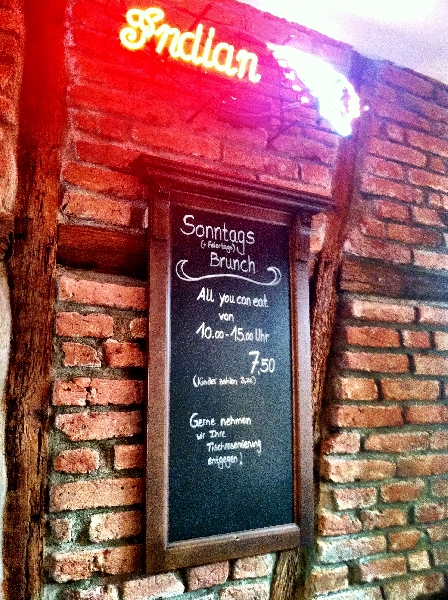 Indian
Sonntags
(+ Feiertags)
Brunch
All you can eat
von
10.00-15.00 Uhr
7,50
(Kinder zahlen 3,75)
Gerne nehmen
wir Ihre
Tischreservierung
entgegen!